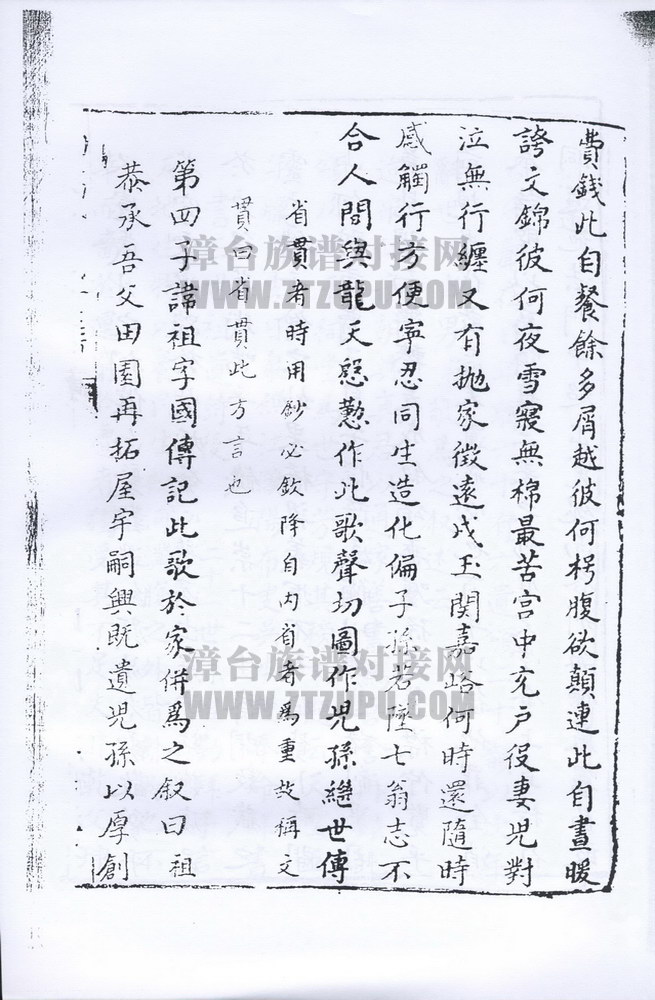 費錢此自餐餘多屑越彼何枵腹欲顛連此自晝暖
誇文錦彼何夜雪寢無棉最苦宮中充戶役妻児對
泣無行纏又有抛家徴遠戍玉関嘉峪何時還隨時
感觸行方便寧忍同生造化偏子孫若墜七翁志不
合人間與龍天慇懃作此歌聲切圖作児孫繼世傳
省貫者時用鈔必欽降自内省者為重故稱文
貫曰省貫此方言也
第四子諱祖字國傳記此歌於家併為之叙曰祖
恭承吾父田園再拓屋宇嗣興既遺児孫以厚創
漳台族谱对接网
WWW.ZTZUPU.COM
漳台族谱对接网
WWW.ZTZUPU.COM